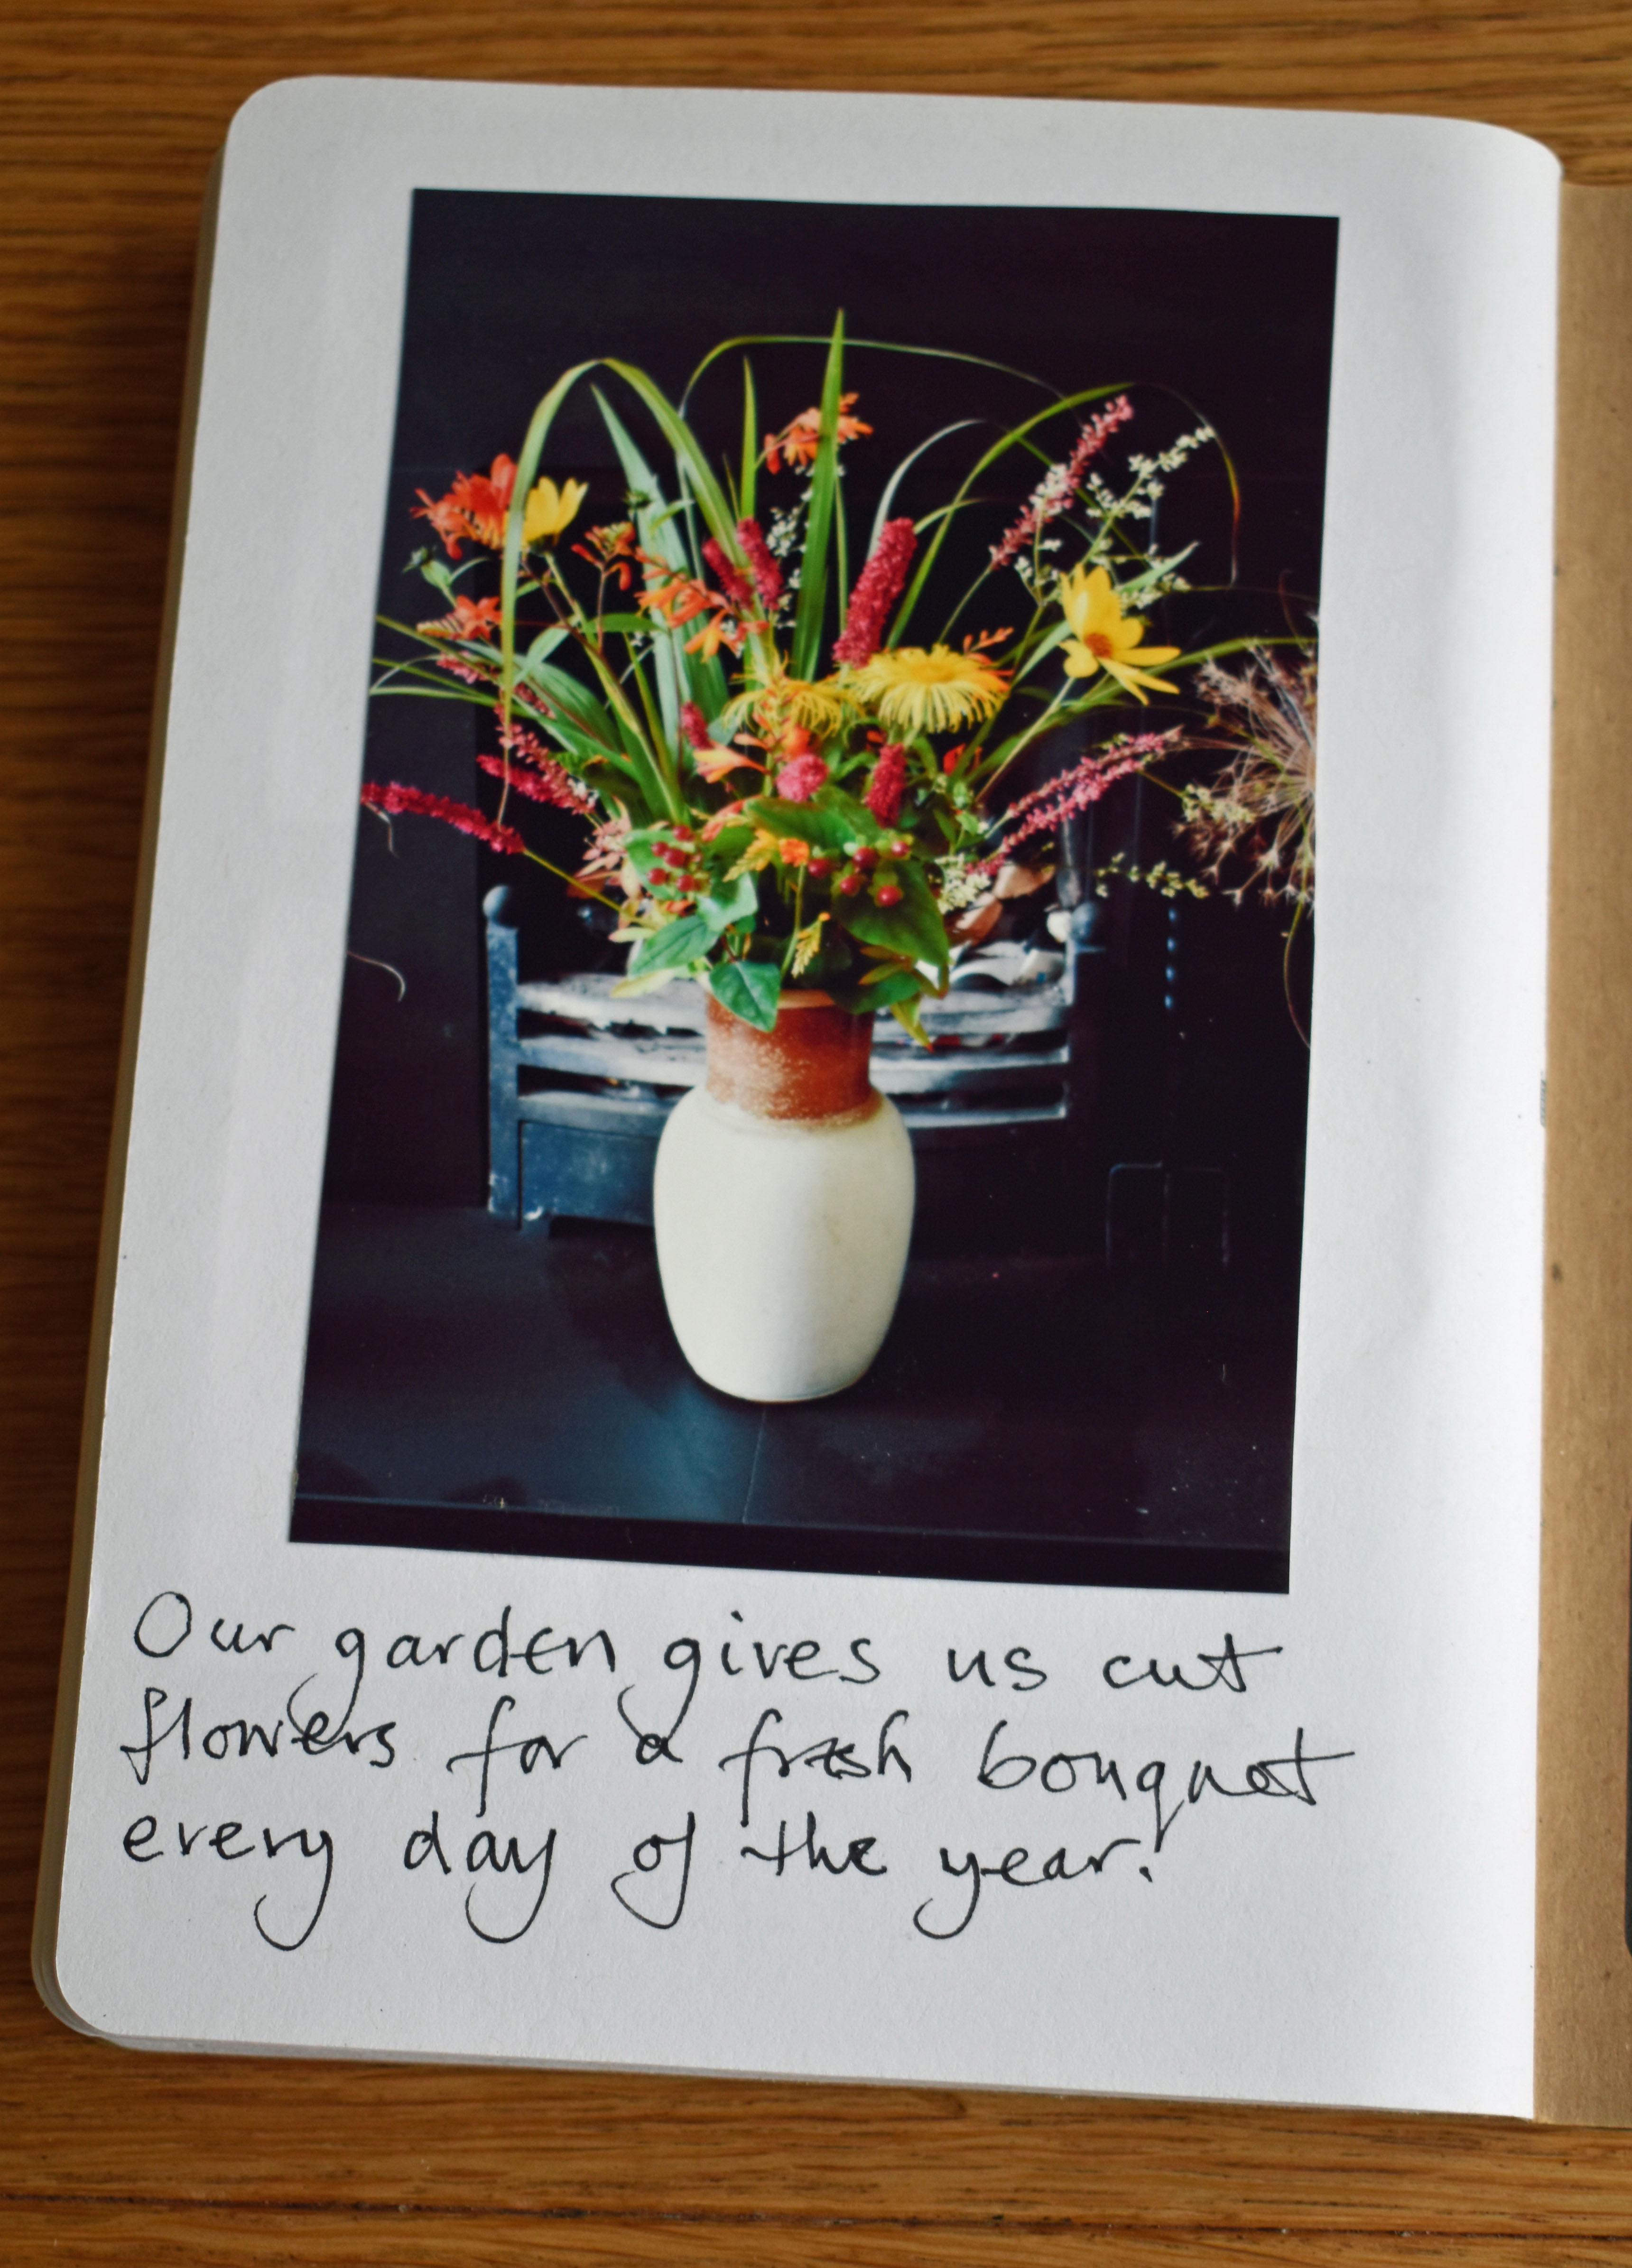 Our garden gives us cut
flowers for a fresh bouquet
every day of the year.